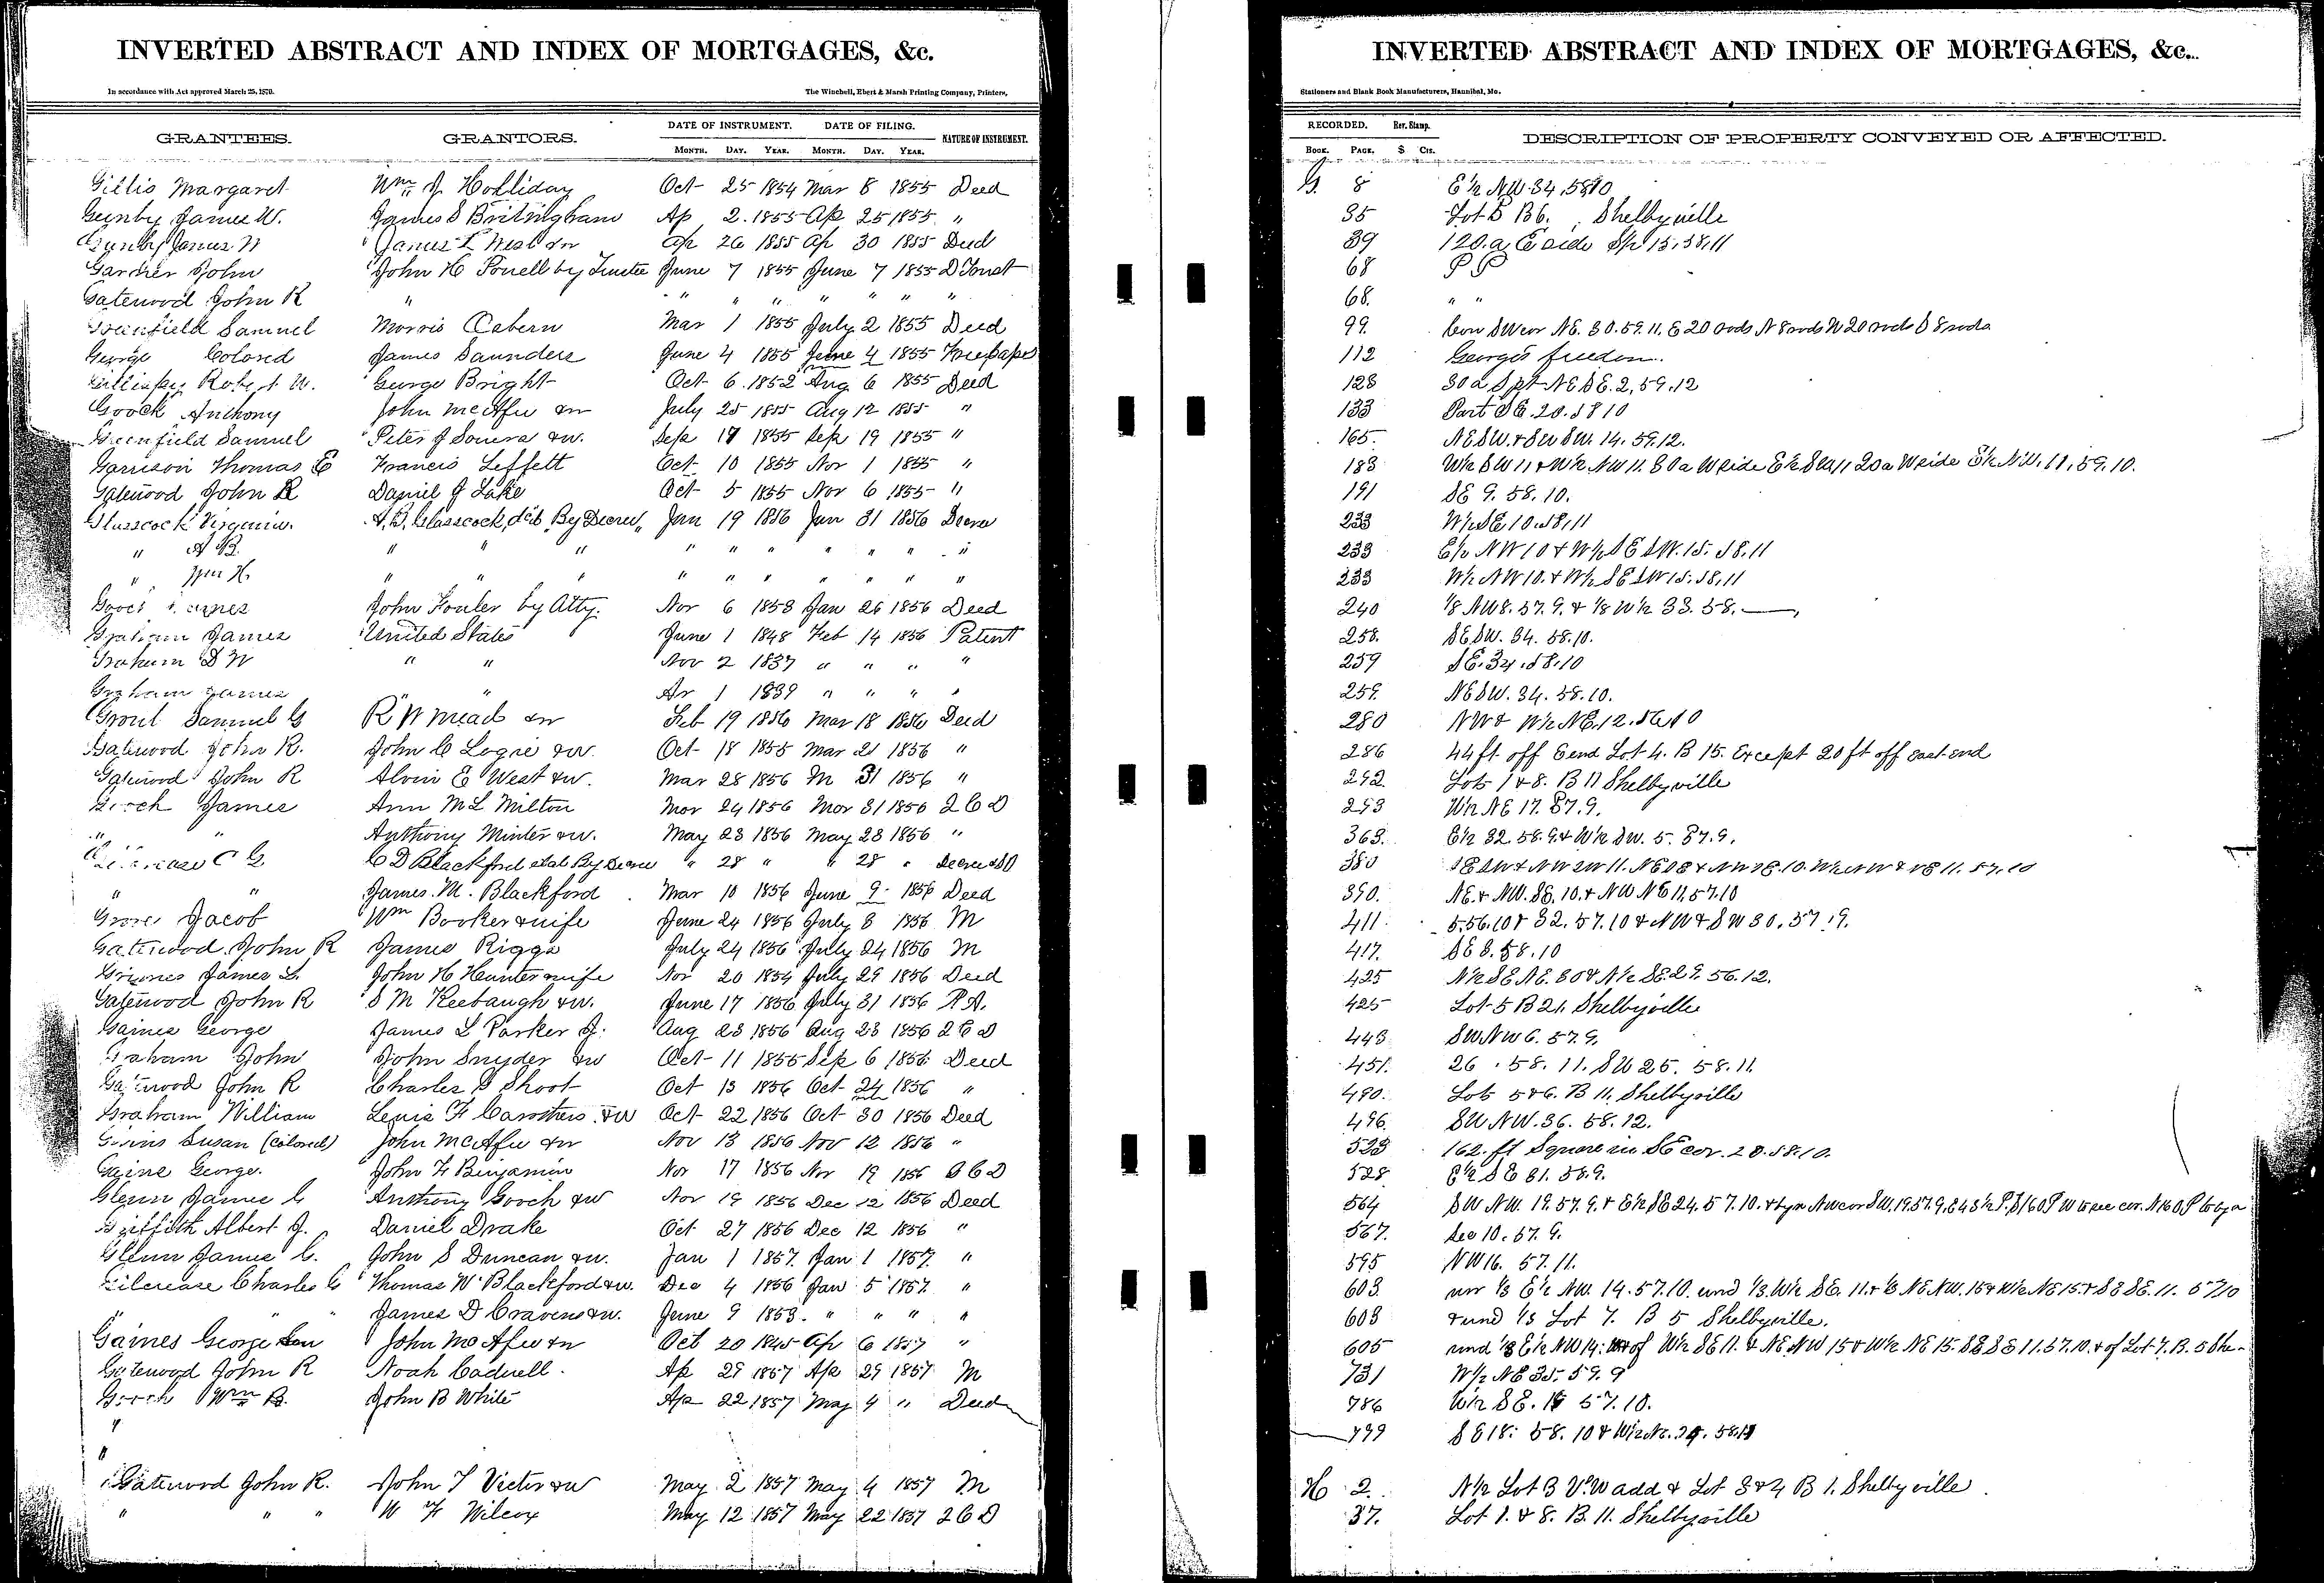 INVERTED ABSTRACT AND INDEX OF MORTGAGES, &c.
In accordance with Act approved March 25, 1870. The Winchell, Ebert & Marsh Printing Company, Printers,
GRANTEES. GRANTORS. DATE OF INSTRUMENT. DATE OF FILING. NATURE OF INSTRUMENT.
MONTH. DAY. YEAR. MONTH. DAY. YEAR.
Gillis Margaret Wm J. Holliday Oct 25 1854 Mar 8 1855 Deed
Gunby James W. James S Britingham Ap 2. 1855 Ap 25 1855 "
Gunby James W James L West &w Ap 26 1855 Ap 30 1855 Deed
Garner John John H Powell by Trustee June 7 1855 June 7 1855 D Trust
Gatewood John R " " " " " " " "
Greenfield Samuel Morris Osborn Mar 1 1855 July 2 1855 Deed
George Colored James Saunders June 4 1855 June 4 1855 Free papes
Robert W. George Bright Oct 6. 1852 Aug 6 1855 Deed
Gooch Anthony John McAfee &w July 25 1855 Aug 12 1855 "
Greenfield Samuel Peter J Souers &w. Sep 17 1855 Sep 19 1855 "
Garrison Thomas E Francis Leffelt Oct 10 1855 Nov 1 1855 "
Gatewood John R Daniel J Lake Oct 5 1855 Nov 6 1855 "
Glasscock Virginia. A. B. Glasscock, By Decree Jan 19 1856 Jan 31 1856 Decree
" A B. " " " " " " " " " "
" Wm H. " " " " " " " " " "
Gooch James John Fowler by Atty. Nov 6 1858 Jan 26 1856 Deed
Graham James United States June 1 1848 Feb 14 1856 Patent
Graham D W " " Nov 2 1837 " " " "
Graham James " " Ap 1 1839 " " " "
Grout Samuel G R W Mead &w Feb 19 1856 Mar 18 1856 Deed
Gatewood John R. John C Logie &w. Oct 18 1855 Mar 21 1856 "
Gatewood John R Alvin E West &w. Mar 28 1856 M 31 1856 "
Gooch James Ann M L Milton Mar 24 1856 Mar 31 1856 2 C D
" " Anthony Minter &w. May 23 1856 May 23 1856 "
C G C D Blackford By Decree " 28 " " 28 "
" " James. M. Blackford Mar 10 1856 June 9 1856 Deed
Jacob Wm Booker & wife June 24 1856 July 8 1856 M
Gatewood John R James Riggs July 24 1856 July 24 1856 M
Grimes James L. John H Hunter wife Nov 20 1854 July 29 1856 Deed
Gatewood John R S M Keebaugh &w. June 17 1856 July 31 1856 P. A.
Gaines George James L Parker J. Aug 23 1856 Aug 23 1856 2 C D
Graham John John Snyder &w Oct 11 1855 Sep 6 1856 Deed
Gatewood John R Charles S Shoot Oct 13 1856 Oct 24 1856 "
Graham William Lewis F Carothers &w Oct 22, 1856 Oct 30 1856 Deed
Susan (Colored) John McAfee &w Nov 13 1856 Nov 12 1856 "
Gaine George. John F Benjamin Nov 17 1856 Nov 19 1856 C D
Glenn James C Anthony Gooch &w Nov 19 1856 Dec 12 1856 Deed
Griffith Albert J. Daniel Drake Oct 27 1856 Dec 12 1856 "
Glenn James C. John S Duncan &w. Jan 1 1857. Jan 1 1857. "
Gilcrease Charles G Thomas W Blackford &w. Dec 4 1856 Jan 5 1857. "
" " James D Cravens &w. June 9 1853. " " " "
Gaines George John McAfee &w Oct 20 1845 Ap 6 1857 "
Gatewood John R Noah Cadwell. Ap 29 1857 Ap 29 1857 M
Gooch Wm B. John B White Ap 22 1857 May 4 " Deed
"
"
Gatewood John R. John T Victor &w May 2 1857 May 4 1857 M
" " " W F Wilcox May 12 1857 May 22 1857 2 C D
INVERTED ABSTRACT AND INDEX OF MORTGAGES, &c.
Stationers and Blank Book Manufacturers, Hannibal, Mo.
RECORDED. Rev. Stamp. DESCRIPTION OF PROPERTY CONVEYED OR AFFECTED.
BOOK. PAGE. $ CTS.
G. 8 E½ NW. 34, 58 10
35 Lot 5 B 6. Shelbyville
39 120. a E side S½ 15, 58, 11
68 P P
68. " "
99. SW cor NE. 30. 59. 11. E 20 rods N 8 rods W 20 rods S 8 rods
112 George's freedom.
128 30 a S pt NE SE. 2, 59, 12
133 Part SE. 20. 58 10
165. NE SW. & SW SW. 14. 59, 12.
183 W½ SW 11 & W½ NW 11. 80 a W side E½ SW 11 20 a W side E½ NW. 11, 59, 10.
191 SE 9. 58. 10.
233 W½ SE 10. 58, 11
233 E½ NW 10 & W½ SE SW. 15. 58. 11
233 W½ NW 10. & W½ SE SW 15. 58, 11
240 ⅛ NW 8. 57. 9. & ⅛ W½ 33. 58. —,
258. SE SW. 34. 58. 10.
259 SE. 34. 58. 10
259. NE SW. 34. 58. 10.
280 NW & W½ NE. 12. 56 10
286 44 ft off E end Lot 4. B 15. Except 20 ft off east end
292. Lots 1 & 8. B 11 Shelbyville
293 W½ NE 17. 57. 9.
363. E½ 32. 58. 9. & W½ SW. 5. 57. 9.
380 SE SW & NW SW 11. NE SE & NW SE. 10. W½ NW & NE 11. 57. 10
390. NE. & NW. SE. 10. & NW NE 11, 57. 10
411. 5. 56. 10 & 32. 57. 10 & NW & SW 30. 57. 9.
417. SE 8. 58. 10
425 N½ SE NE. 30 & N½ SE 29. 56. 12.
425 Lot 5 B 21. Shelbyville
443 SW NW 6. 57. 9.
451. 26. 58. 11. SW 25. 58. 11.
490. Lots 5 & 6. B 11. Shelbyville
496. SW NW. 36. 58. 12.
523 162. ft Square in SE cor. 20. 58. 10.
528. E½ SE 31. 58. 9.
564 SW NW. 19. 57. 9. & E½ SE 24. 57. 10. NW cor SW. 19 57. 9. E
567. Sec 10. 57. 9.
595 NW 16. 57. 11.
603. ⅓ E½ NW. 14. 57. 10. und ⅓ W½ SE. 11. & ⅓ NE NW. 15 & W½ NE 15. & SE SE. 11. 57 10
603 & und ⅓ Lot 7. B 5 Shelbyville.
605 und ⅓ E½ NW 14: of W½ SE 11. & NE NW 15 & W½ NE 15. SE SE 11. 57. 10. & of Lot 7. B. 5 She-
731 W½ NE 35. 59. 9
786 W½ SE. 57. 10.
799 SE 18. 58. 10 &
H 2. N½ Lot 3 add & Lot 3 & 4 B 1. Shelbyville
37. Lot 1. & 8. B. 11. Shelbyville